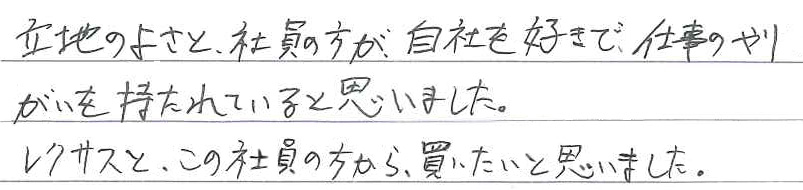 立地のよさと、社員の方が、自社を好きで、仕事のやり
がいを持たれていると思いました。
レクサスと、この社員の方から、買いたいと思いました。